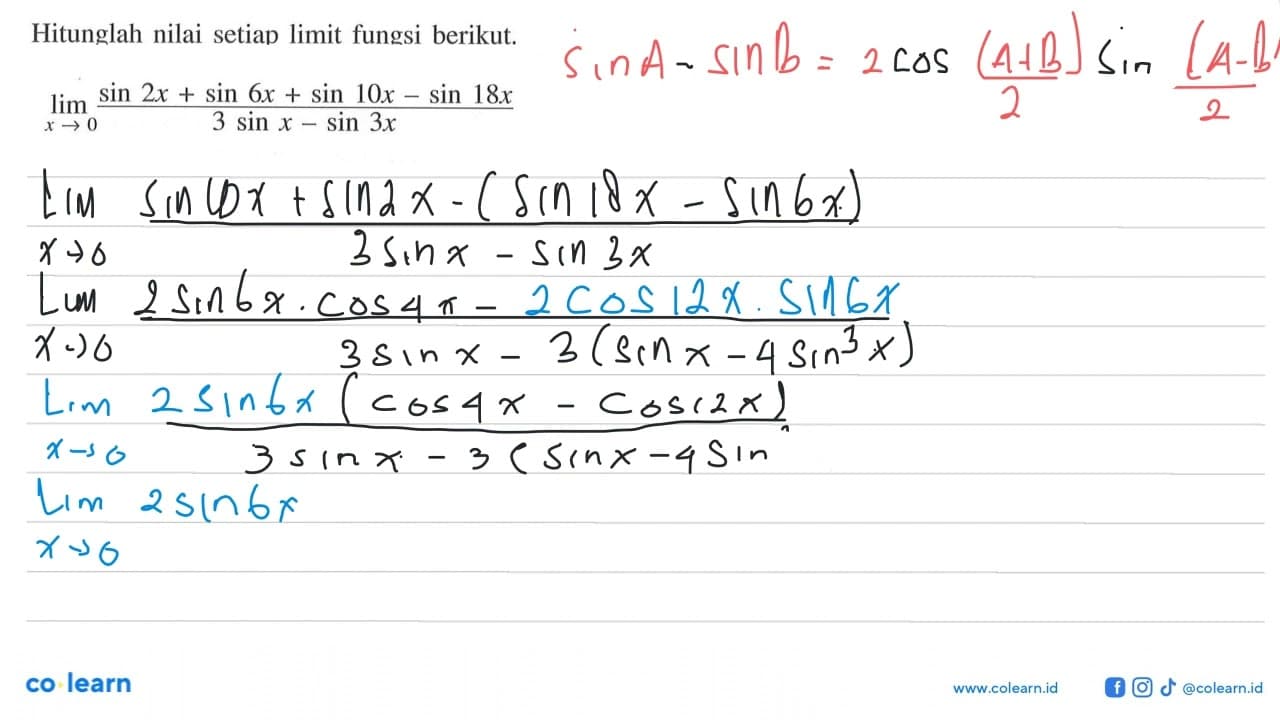 Hitunglah nilai setiap limit fungsi berikut.
lim x → 0 (sin 2x + sin 6x + sin 10x − sin 18x) / (3 sin x − sin 3x)
sin A - sin B = 2 cos (A+B)/2 sin (A-B)/2
Lim x→0 (sin 10x + sin 2x - (sin 18x - sin 6x)) / (3 sin x - sin 3x)
Lim x→0 (2 sin 6x . cos 4x - 2 cos 12x . sin 6x) / (3 sin x - 3(sin x - 4 sin³ x))
Lim x→0 2 sin 6x (cos 4x - cos 12x) / (3 sin x - 3(sin x - 4 sin
Lim x→0 2 sin 6x
co learn
www.colearn.id
@colearn.id